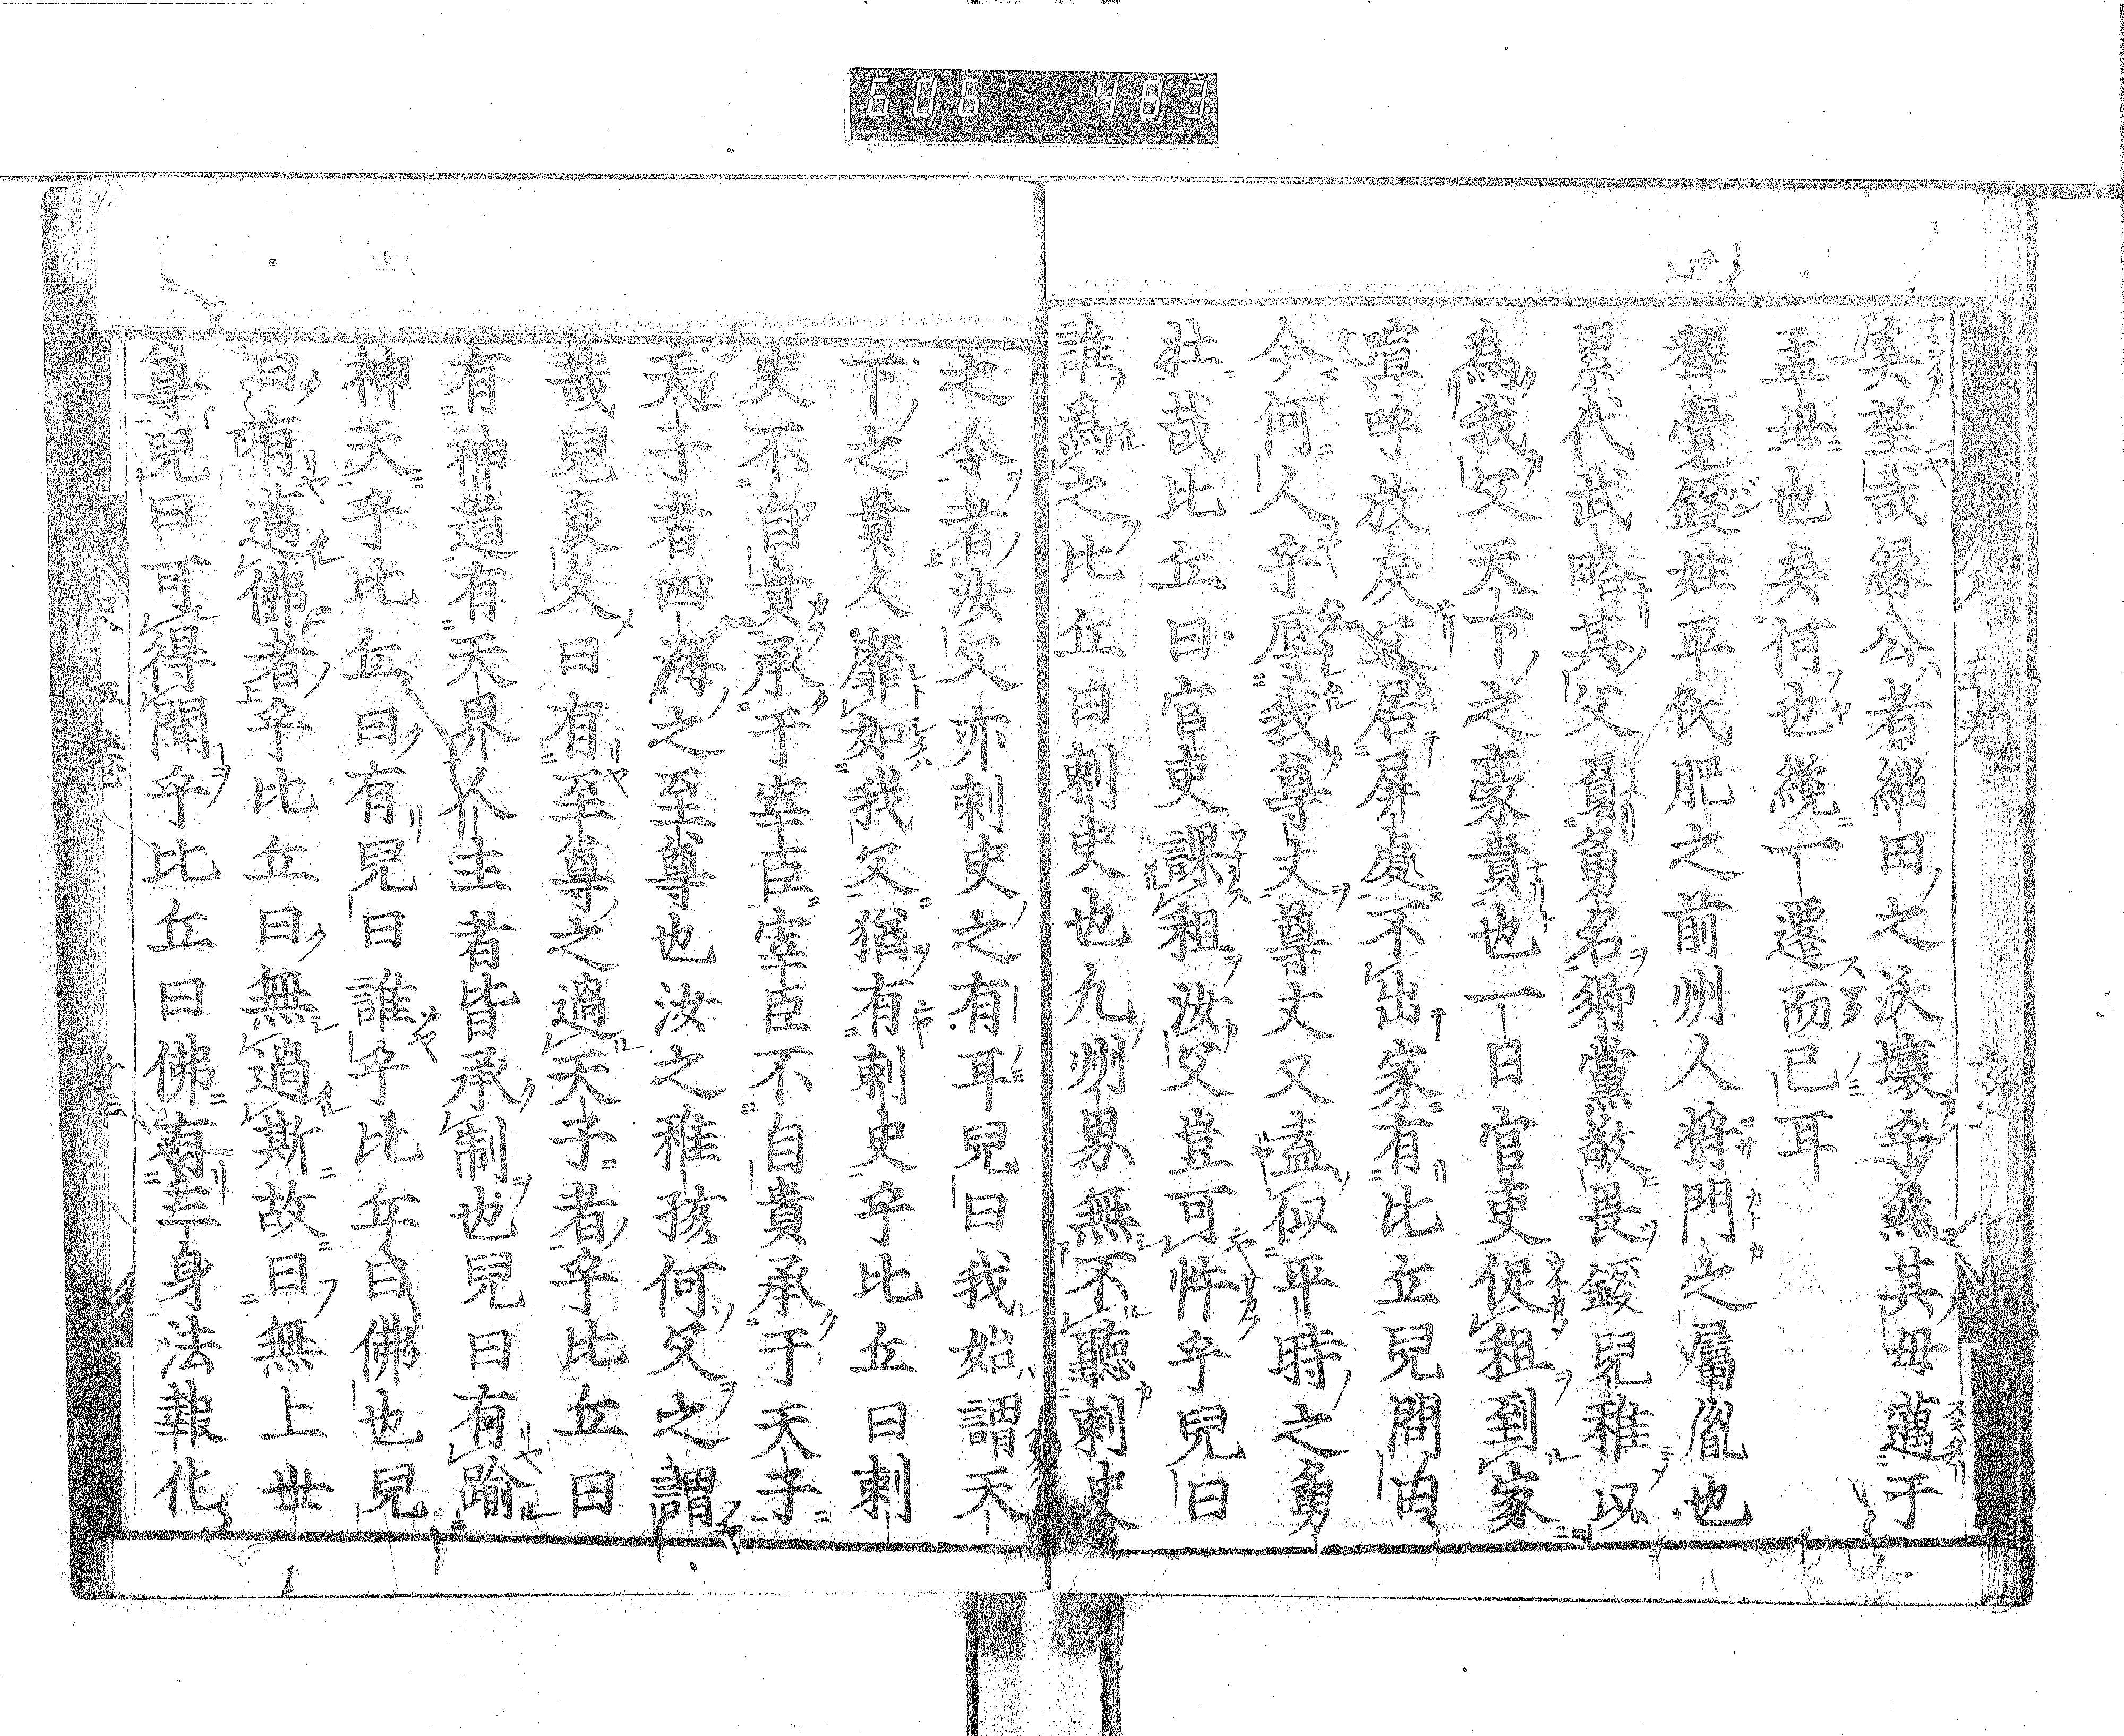 606 483
奚望哉緑公者緇田之沃壤乎然其母邁于
孟母也矣何也纔一遷而已耳
釋覺鑁姓平氏肥之前州人將門之屬胤也
累代武略其父負勇名郷黨敬畏鑁兒稚以
爲我父天下之豪貴也一日官吏促租到家
喧呼放戻父居屏處不出家有比丘兒問曰
今何人乎辱我尊丈尊丈又盍似平時之勇
壯哉比丘曰官吏課租汝父豈可忤乎兒曰
誰爲之比丘曰刺史也凡州界無不聽刺史
之令者汝父亦刺史之有耳兒曰我始謂天
下之貴人靡如我父猶有刺史乎比丘曰刺
史不自貴承于宰臣宰臣不自貴承于天子
天子者四海之至尊也汝之稚孩何父之謂
哉兒良久曰有至尊之過天子者乎比丘曰
有神道有天界人主者皆承制也兒曰有踰
神天乎比丘曰有兒曰誰乎比丘曰佛也兒
曰有邁佛者乎比丘曰無過斯故曰無上世
尊兒曰可得聞乎比丘曰佛有三身法報化